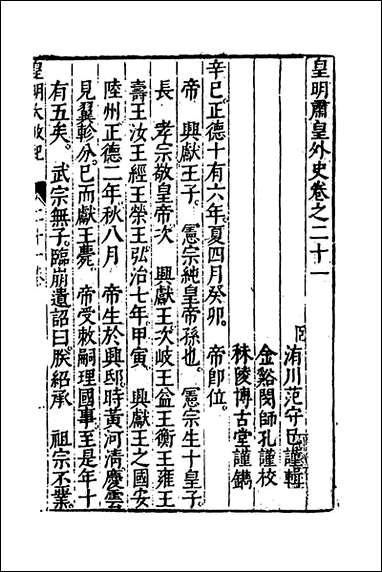 皇明肅皇外史卷之二十一
洧川范守已謹輯
金谿閔師孔謹校
秣陵博古堂謹鐫
辛巳正德十有六年。夏四月癸卯。 帝即位。
帝 興獻王子。 憲宗純皇帝孫也。 憲宗生十皇子
長 孝宗敬皇帝次 興獻王次岐王益王衡王雍王
壽王汝王經王榮王弘治七年甲寅 興獻王之國安
陸州正德二年秋八月 帝生於興邸時黃河清慶雲
見翼軫分。已而獻王薨。 帝受敕嗣理國事至是年十
有五矣。 武宗無子。臨崩遺詔曰。朕紹承 祖宗丕業。
皇明大政記